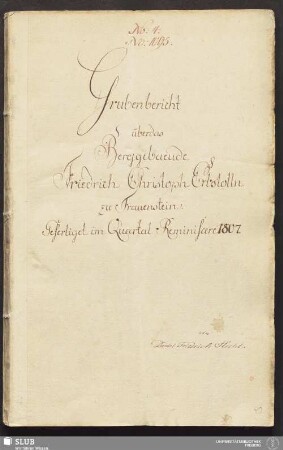 No: 1:
No: 1095.
Grubenbericht
über das
Berggebäude
Friedrich Christoph Erbstolln
zu Frauenstein.
Gefertiget im Quartal Reminiscere 1807
von
SLUB
WIR FÜHREN WISSEN.
UNIVERSITÄTSBIBLIOTHEK
FREIBERG